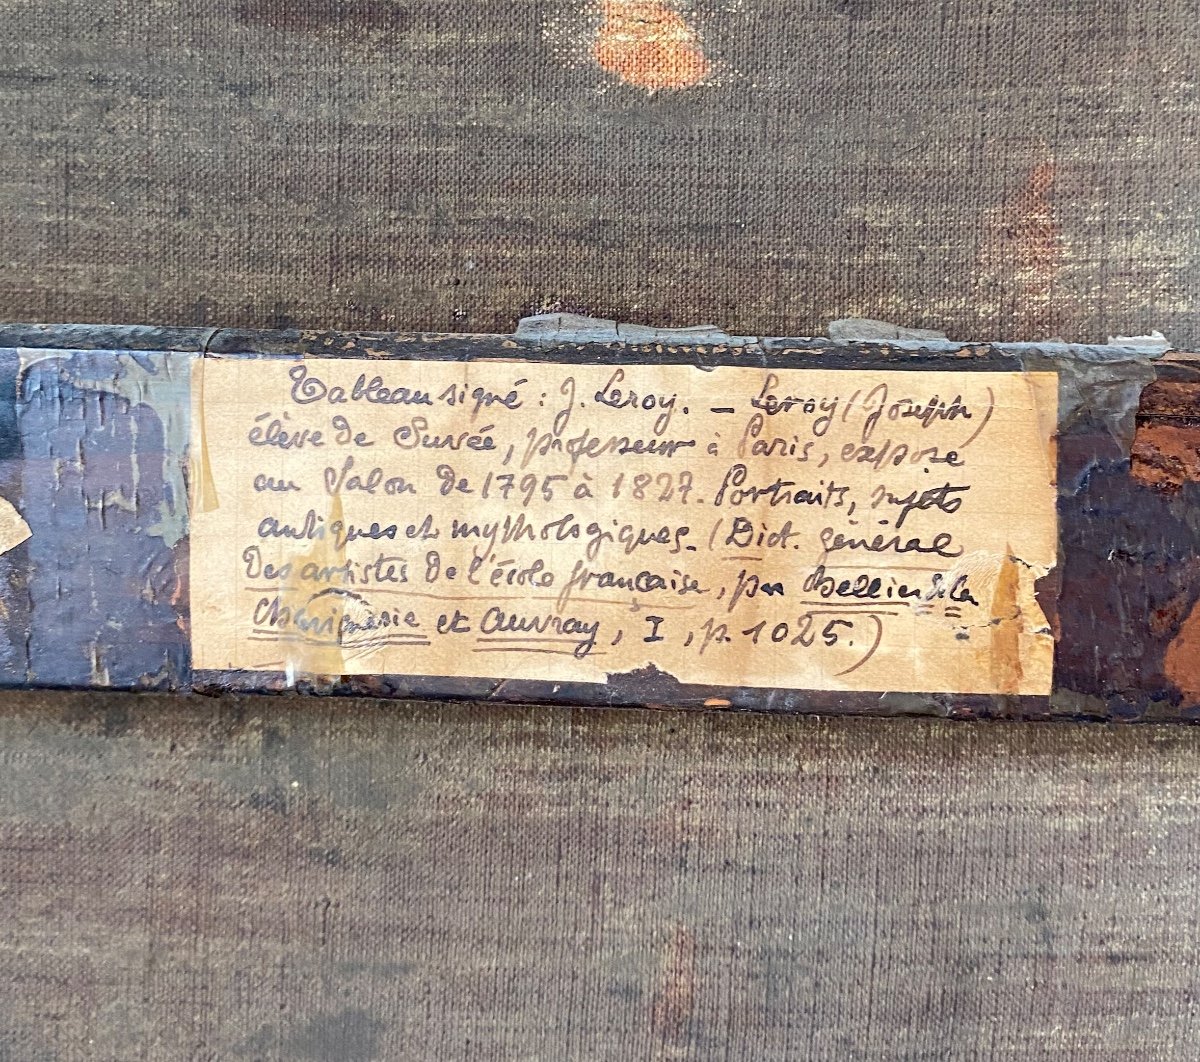 Tableau signé : J. Leroy. – Leroy (Joseph)
élève de Suvée, professeur à Paris, expose
au Salon de 1795 à 1827. Portraits, sujets
antiques et mythologiques. (Dict. général
des artistes de l'école française, par Bellier de la
Chavignerie et Auvray, I, p. 1025.)